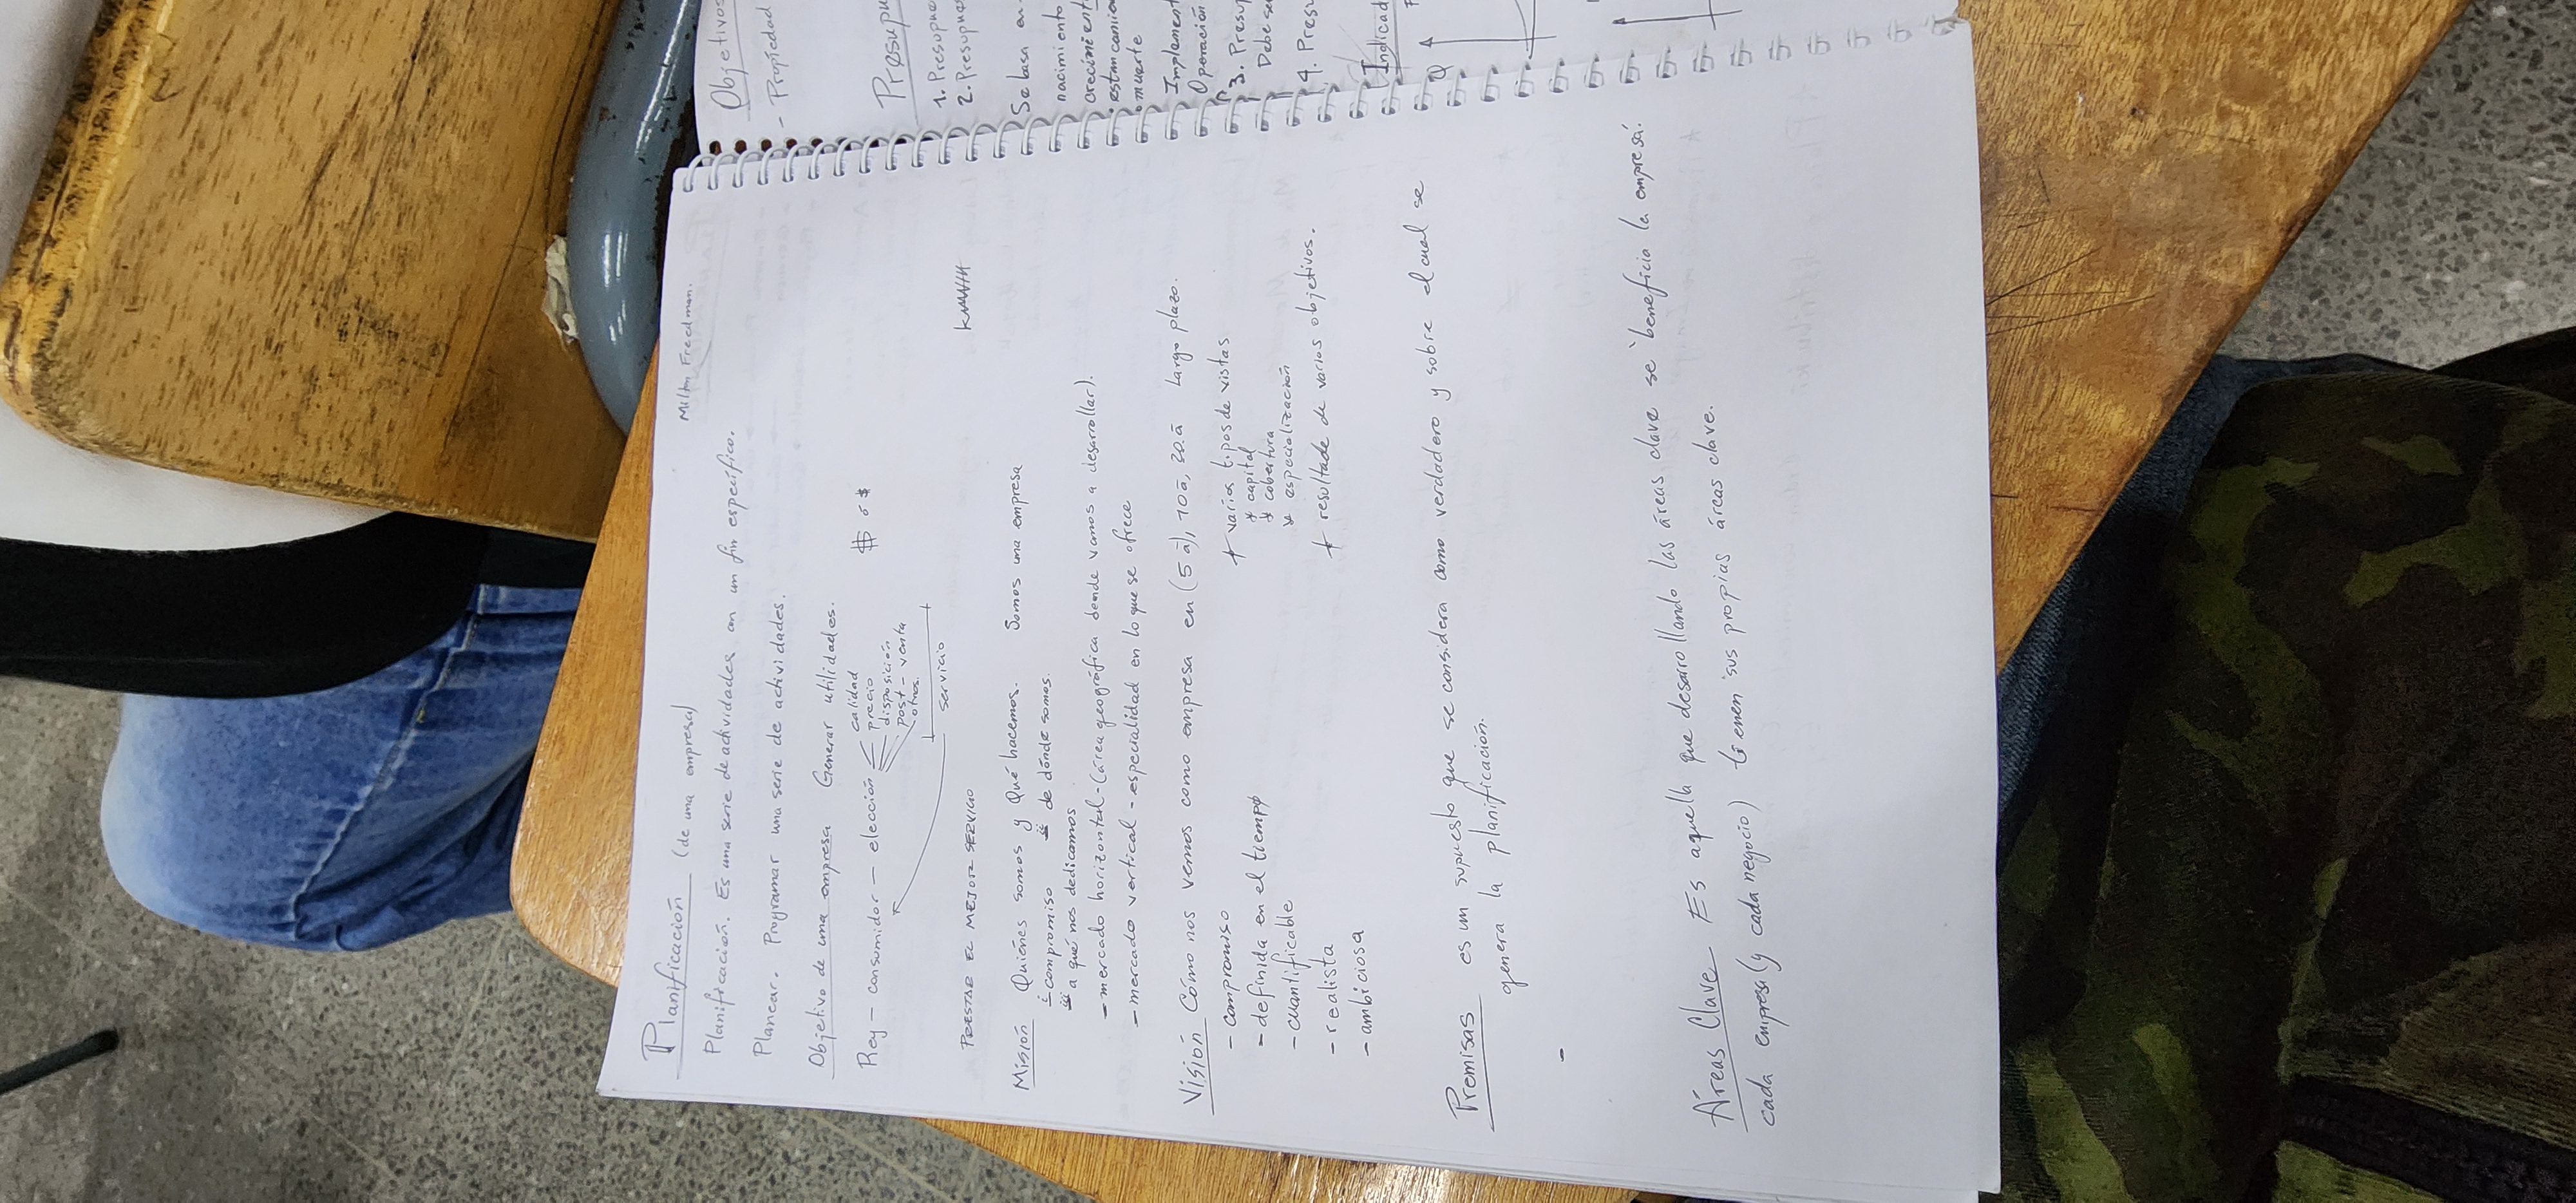 Planificación (de una empresa)
Milton Freedman.
Planificación. Es una serie de actividades con un fin específico.
Planear. Programar una serie de actividades.
Objetivo de una empresa Generar utilidades.
Rey – consumidor – elección
calidad
precio
disposición
post - venta
otros.
servicio
$ ó $
PRESTAR EL MEJOR SERVICIO
Misión Quiénes somos y Qué hacemos. Somos una empresa
i compromiso ii de dónde somos.
iii a qué nos dedicamos
- mercado horizontal - (área geográfica donde vamos a desarrollar).
- mercado vertical - especialidad en lo que se ofrece
Visión Cómo nos vemos como empresa en (5 a), 10 a, 20 a Largo plazo.
- compromiso
- definida en el tiempo
- cuantificable
- realista
- ambiciosa
+ varios tipos de vistas
* capital
* cobertura
* especialización
+ resultade de varios objetivos.
Premisas es un supuesto que se considera como verdadero y sobre el cual se
genera la planificación.
-
Áreas Clave Es aquella que desarrollando las áreas clave se beneficia la empresa.
cada empresa (y cada negocio) tienen sus propias áreas clave.
Objetivos
- Propiedad
1. Presupue
2. Presupues
Se basa en
nacimiento
crecimient
estancamie
muerte
Implement
Operación
3. Presup
Debe se
4. Presu
Indicad